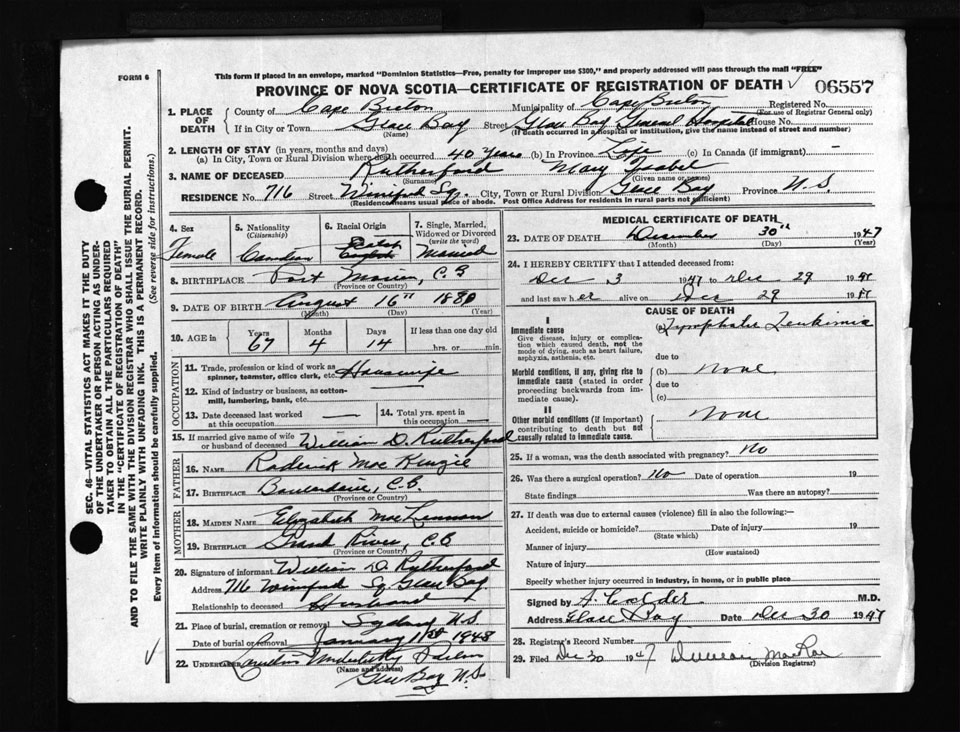 FORM 6
This form if placed in an envelope, marked "Dominion Statistics—Free, penalty for improper use $300," and properly addressed will pass through the mail "FREE"
PROVINCE OF NOVA SCOTIA—CERTIFICATE OF REGISTRATION OF DEATH 06557
SEC. 46—VITAL STATISTICS ACT MAKES IT THE DUTY
OF THE UNDERTAKER OR PERSON ACTING AS UNDER-
TAKER TO OBTAIN ALL THE PARTICULARS REQUIRED
IN THE "CERTIFICATE OF REGISTRATION OF DEATH"
AND TO FILE THE SAME WITH THE DIVISION REGISTRAR WHO SHALL ISSUE THE BURIAL PERMIT.
WRITE PLAINLY WITH UNFADING INK. THIS IS A PERMANENT RECORD.
Every item of information should be carefully supplied. (See reverse side for instructions.)
1. PLACE OF DEATH County of Cape Breton Municipality of Cape Breton Registered No.
(For use of Registrar General only)
If in City or Town Glace Bay Street Glace Bay General Hospital House No.
(Name) (If death occurred in a hospital or institution, give the name instead of street and number)
2. LENGTH OF STAY (in years, months and days)
(a) In City, Town or Rural Division where death occurred 40 years (b) In Province Life (c) In Canada (if immigrant) —
3. NAME OF DECEASED Rutherford Mary Isabel
(Surname) (Given name or names)
RESIDENCE No. 716 Street Winifred Sq. City, Town or Rural Division Glace Bay Province N.S.
(Residence means usual place of abode. Post Office Address for residents in rural parts not sufficient)
4. Sex Female
5. Nationality (Citizenship) Canadian
6. Racial Origin
7. Single, Married, Widowed or Divorced (write the word) Married
8. BIRTHPLACE Port Morien, C.B
(Province or Country)
9. DATE OF BIRTH August 16th 1880
(Month) (Day) (Year)
10. AGE in Years 67 Months 4 Days 14 If less than one day old hrs. or min.
OCCUPATION
11. Trade, profession or kind of work as spinner, teamster, office clerk, etc. Housewife
12. Kind of industry or business, as cotton-mill, lumbering, bank, etc. —
13. Date deceased last worked at this occupation —
14. Total yrs. spent in this occupation —
15. If married give name of wife or husband of deceased William D. Rutherford
FATHER
16. NAME Roderick MacKenzie
17. BIRTHPLACE Boularderie, C.B.
(Province or Country)
MOTHER
18. MAIDEN NAME Elizabeth MacLennon
19. BIRTHPLACE Grand River, C.B
(Province or Country)
20. Signature of informant William D. Rutherford
Address 716 Winifred Sq Glace Bay
Relationship to deceased Husband
21. Place of burial, cremation or removal Sydney N.S
Date of burial or removal January 1st 1948
22. UNDERTAKER
(Name and address)
Glace Bay N.S.
MEDICAL CERTIFICATE OF DEATH
23. DATE OF DEATH December 30th 1947
(Month) (Day) (Year)
24. I HEREBY CERTIFY that I attended deceased from
Dec 3 1947 to Dec 29 1947
and last saw her alive on Dec 29 1947
CAUSE OF DEATH
I
Immediate cause
Give disease, injury or complication which caused death, not the mode of dying, such as heart failure, asphyxia, asthenia, etc.
(a) Lymphatic Leukemia
due to
Morbid conditions, if any, giving rise to immediate cause (stated in order proceeding backwards from immediate cause).
(b) none
due to
(c)
II
Other morbid conditions (if important) contributing to death but not causally related to immediate cause.
None
25. If a woman, was the death associated with pregnancy? No
26. Was there a surgical operation? No Date of operation 19
State findings Was there an autopsy?
27. If death was due to external causes (violence) fill in also the following:—
Accident, suicide or homicide? Date of injury 19
(State which)
Manner of injury
(How sustained)
Nature of injury
Specify whether injury occurred in industry, in home, or in public place
Signed by A. Calder M.D.
Address Glace Bay Date Dec 30 1947
28. Registrar's Record Number
29. Filed Dec 30 1947 MacRae
(Division Registrar)